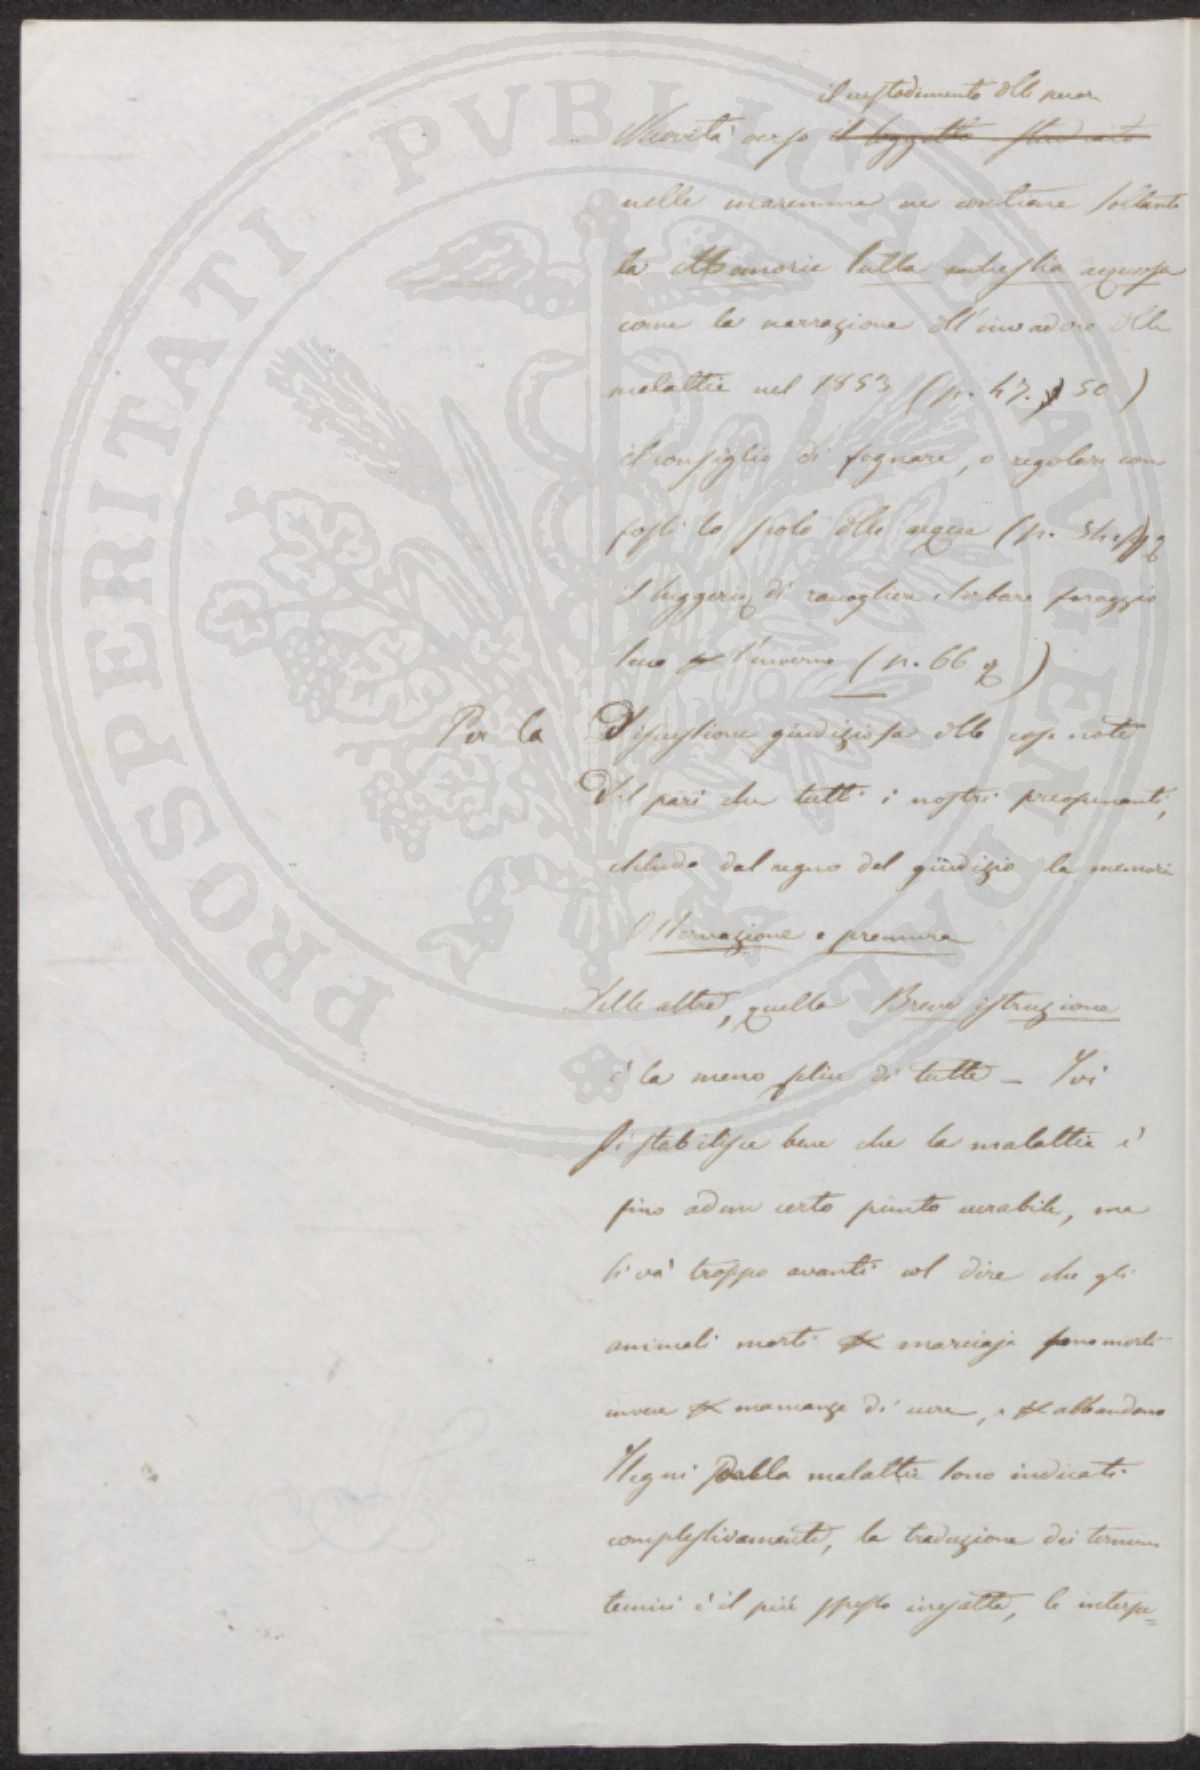 il custodimento delle pecore
Novità verso il soggetto
nelle maremme ne contiene soltanto
la Memoria sulla
come la narrazione dell'invadere della
malattia nel 1853 (p. 47. 50)
il consiglio di fognare, o regolare con
fossi lo scolo delle acque (p. segg
il suggerire di raccogliere e serbare foraggio
sano per l'inverno (p. 66 )
Per la Discussione giudiziosa delle cose note
Del pari che tutti i nostri preopinanti,
escludo dal regno del giudizio la memoria
Osservazione e premura
Delle altre, quella Breve istruzione
è la meno felice di tutte – Ivi
si stabilisce bene che la malattia è
fino ad un certo punto curabile, ma
si và troppo avanti col dire che gli
animali morti per marciaja sono morti
invece per mancanza di cure, e per abbandono
I segni della malattia sono indicati
complessivamente, la traduzione dei termini
tecnici è il più spesso inesatta, le interpe=
PROSPERITATI PVBLICAE AVGENDAE